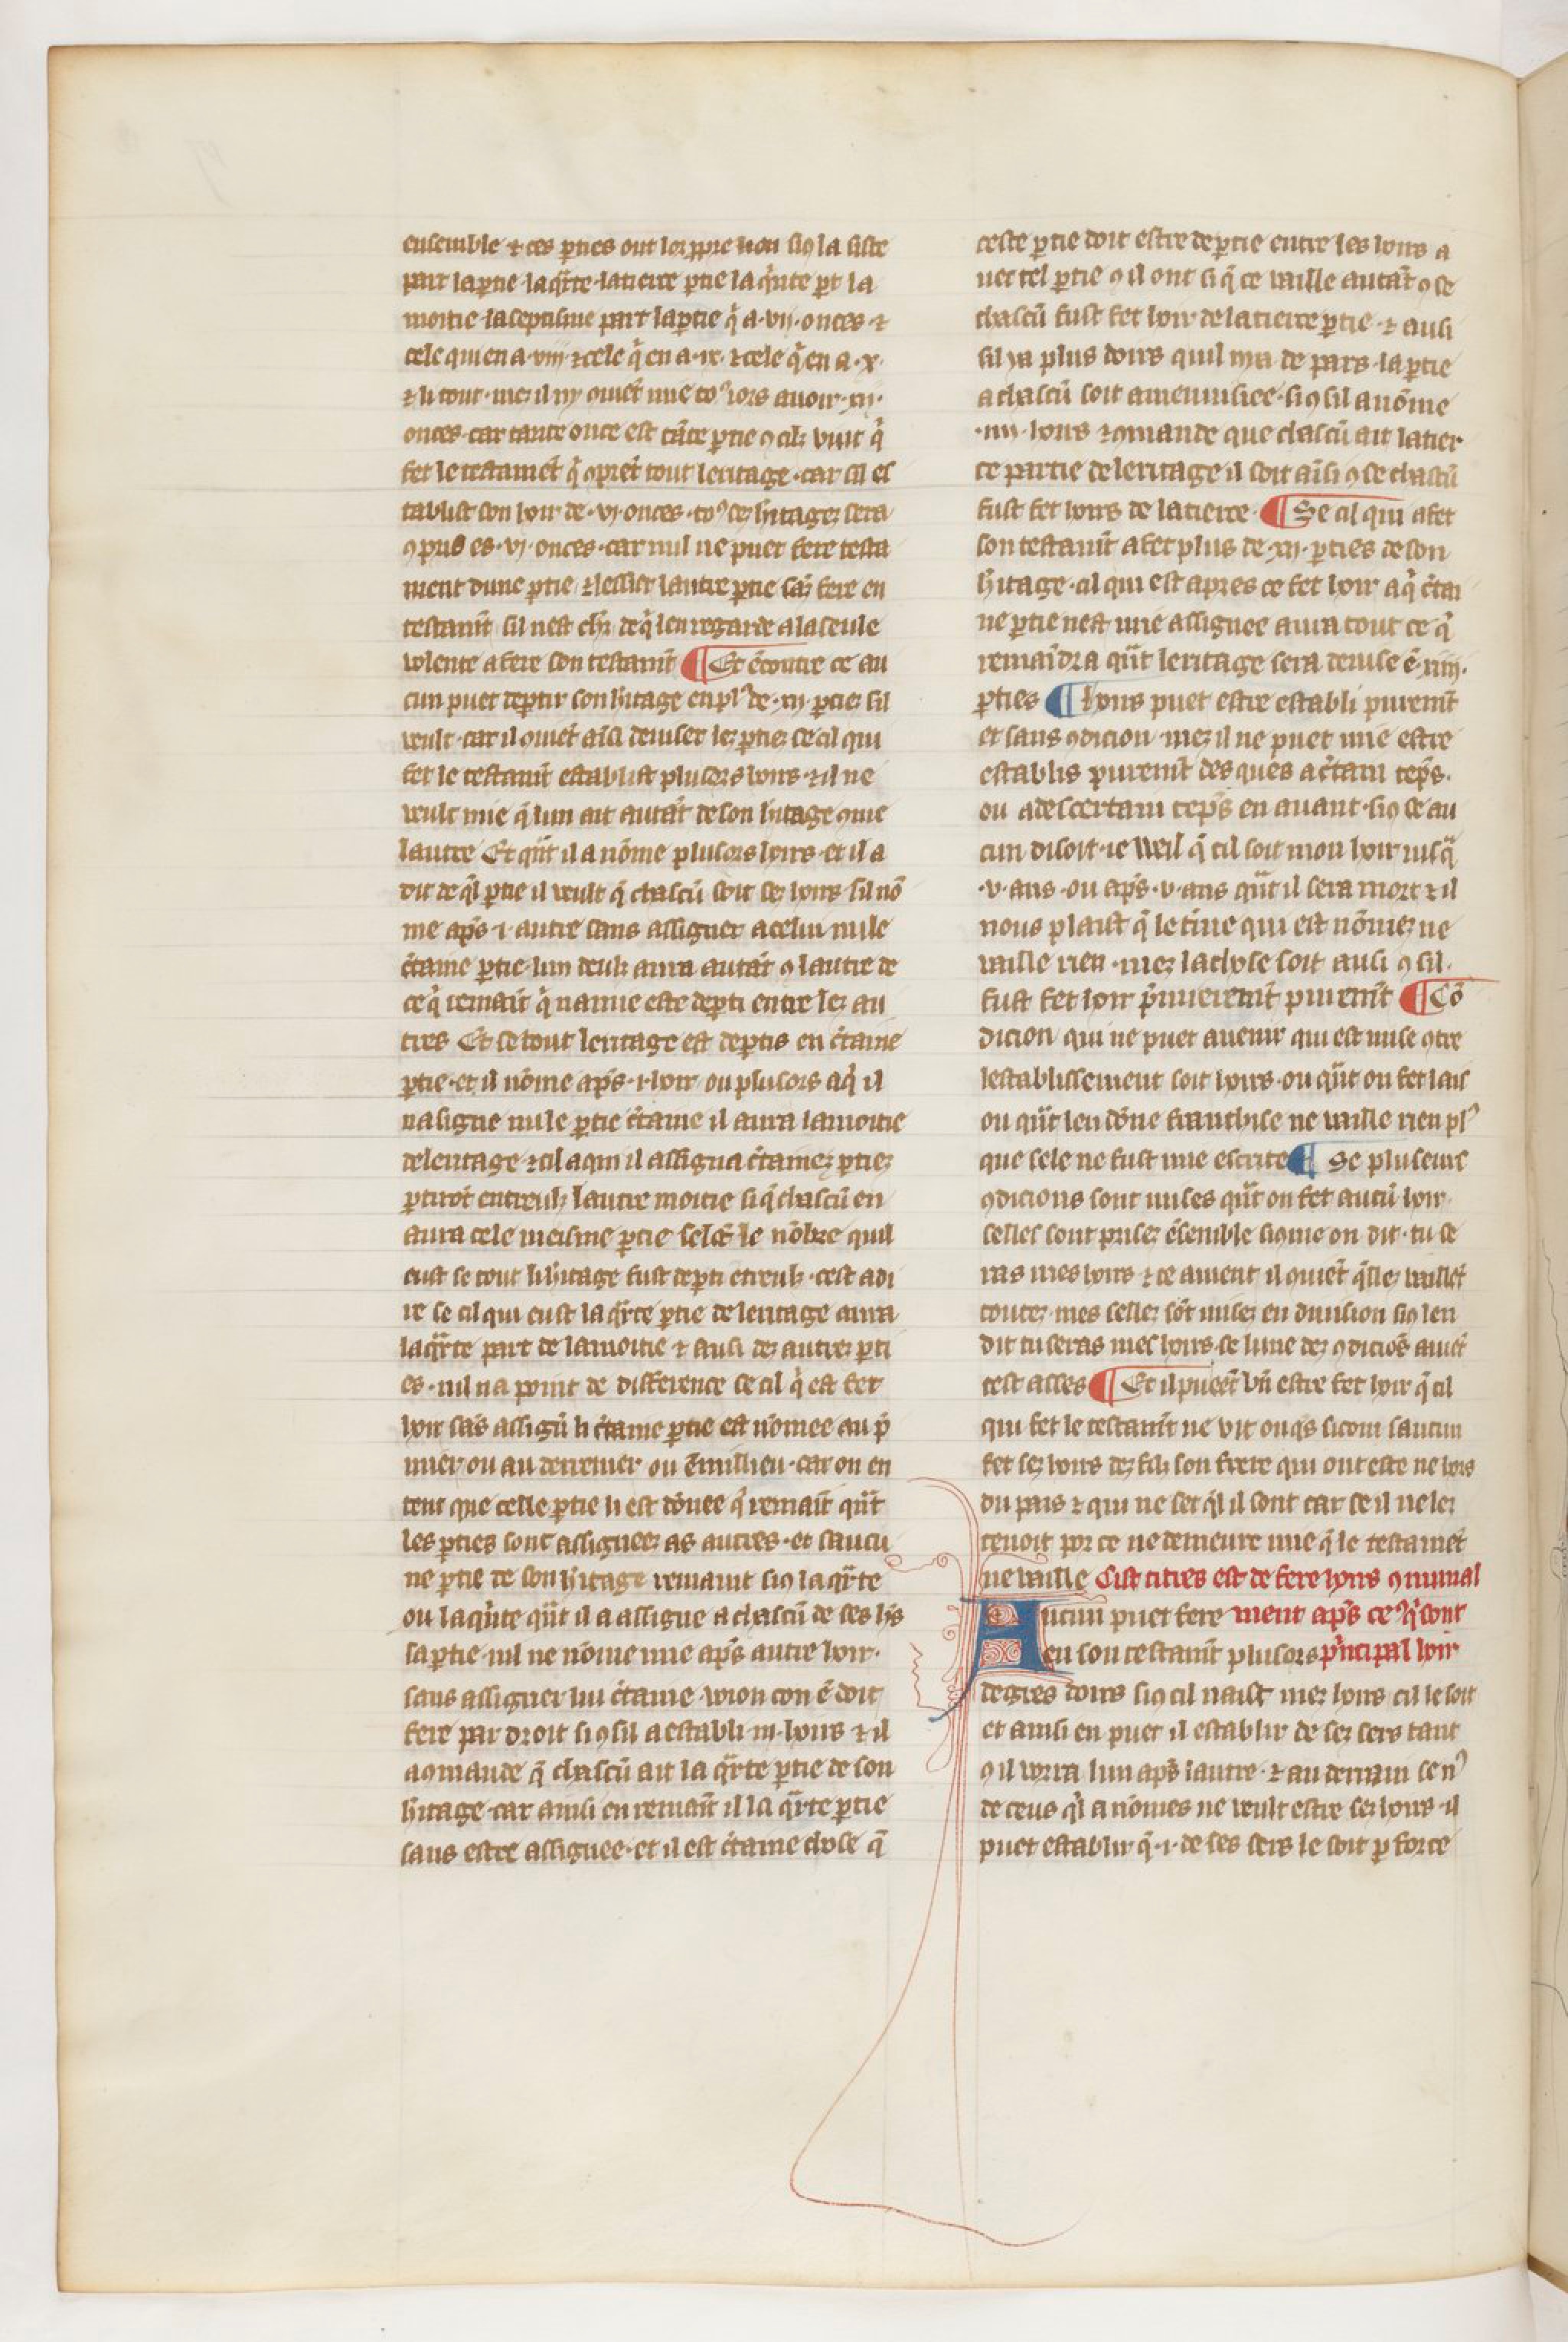 ensemble ⁊ ces ꝑties ont lor ꝓpre non si ꝯ la siste
part la ꝑtie · la q̃rte · la tierce ꝑtie la q̃nte ꝑt la
moitie · la septisme part la ꝑtie q̃ a · vij · onces · ⁊
cele qui en a · viij · ⁊ cele q̃ en a · ix · ⁊ cele q̃ en a · x ·
⁊ li tout · mez il ny ꝯuiẽt mie toꝰ iors auoir · xij ·
onces · car tante once est tãte ꝑtie ꝯ cilz vuit q̃
fet le testamẽt q̃ ꝯprẽt tout leritage · car sil es
tablist son hoir de · vj · onces · toꝰ cez h̃itagez sera
ꝯpris es · vj · onces · car nul ne puet fere testa
ment dune ꝑtie ⁊ lessier lautre ꝑtie sãz fere en
testam̃t sil nest ch̃rs de q̃ len regarde a la seule
volente a fere son testam̃t ¶ Et ẽcontre ce au
cun puet deꝑtir son h̃itage en plꝰ de · xij · ꝑtiez sil
veult · car il ꝯuiẽt aĩsi deuiser lez ꝑtiez se cil qui
fet le testam̃t establist plusors hoirs · ⁊ il ne
veult mie q̃ lun ait autãt de son h̃itage ꝯme
lautre Et q̃ñt il a nõme plusors hoirs · et il a
dit de q̃l ꝑtie il veult q̃ chascũ soit sez hoirs · sil nõ
me ap̃s · i · autre sans assigner a celui nule
c̃taine ꝑtie · lun deulz aura autãt ꝯ lautre de
ce q̃ remaĩt q̃ naniue este deꝑti entre lez au
tres Et se tout leritage est deꝑtis en c̃taine
ꝑtie · et il nõme ap̃s · i · hoir ou plusors a q̃ il
nasigne nule ꝑtie c̃taine il aura la moitie
de leritage · ⁊ cil a qui il assigna c̃tainez ꝑtiez
ꝑtirõt entreulz lautre moitie si q̃ chascũ en
aura cele meisme ꝑtie selõc le nõbre quil
eust se tout li h̃itage fust deꝑti ẽtreulz · cest a di
re se cil qui eust la q̃rte ꝑtie de leritage aura
la q̃rte part de la moitie ⁊ ausi dez autrez ꝑti
es · nil na point de difference se cil q̃ est fet
hoir sãs assigñ li c̃taine ꝑtie est nõmee au p̃
mier ou au derrenier ou ẽmilieu · car on en
tent que celle ꝑtie li est dõnee q̃ remaĩt q̃ñt
les ꝑties sont assigneez as autres · et saucu
ne ꝑtie de son h̃itage remaint si ꝯ la q̃rte
ou la q̃nte q̃ñt il a assigne a chascũ de ses h̃s
sa ꝑtie · nil ne nõme mie ap̃s autre hoir ·
sans assigner lui c̃taine · voion con ẽ doit
fere par droit si ꝯ sil a establi · iii · hoirs ⁊ il
a ꝯmande q̃ chascũ ait la q̃rte ꝑtie de son
h̃itage · car ainsi en remaĩt il la q̃rte ꝑtie
sans estre assignee · et il est c̃taine chose q̃
ceste ꝑtie doit estre deꝑtie entre les hoirs a
uec tel ꝑtie ꝯ il ont si q̃ ce vaille autãt ꝯ se
chascũ fust fet hoir de la tierce ꝑtie · ⁊ ausi
sil ia plus doirs quil nia de pars · la ꝑtie
a chascũ soit amenuisiee · si ꝯ sil a nõme
· iiii · hoirs ⁊ ꝯmande que chascũ ait la tier
ce partie de leritage il soit aĩsi ꝯ se chascũ
fust fet hoirs de la tierce · ¶ Se cil qui a fet
son testam̃t a fet plus de · xij · ꝑties de son
h̃itage · cil qui est apres ce fet hoir a q̃ c̃tai
ne ꝑtie nest mie assignee aura tout ce q̃
remaĩdra q̃ñt leritage sera deuise ẽ · xiiij ·
ꝑties ¶ Hoirs puet estre establi purem̃t
et sans ꝯdicion · mez il ne puet mie estre
establis purem̃t des ques a c̃tain tẽps ·
ou a des certain tẽps en auant · si ꝯ se au
cun disoit · ie weil q̃ cil soit mon hoir iusq̃
· v · ans · ou ap̃s · v · ans q̃ñt il sera mort ⁊ il
nous plaist q̃ le t̃me qui est nõmez ne
vaille rien · mez la chose soit ausi ꝯ sil ·
fust fet hoir p̃mierem̃t purem̃t ¶ Cõ
dicion qui ne puet auenir qui est mise ꝯtre
lestablissement soit hoirs · ou q̃ñt on fet lais
ou q̃ñt len dõne franchise ne vaille rien plꝰ
que sele ne fust mie escrite ¶ Se pluseurs
ꝯdicions sont mises q̃ñt on fet aucũ hoir ·
selles sont prisez ẽsemble si ꝯme on dit · tu se
ras mes hoirs ⁊ ce auient il ꝯuiẽt q̃llez vaillẽt
toutez · mes sellez sõt misez en diuision si ꝯ len
dit tu seras mes hoirs · se lune dez ꝯdiciõs auiẽt
cest asses ¶ Et il pueẽt bñ estre fet hoir q̃ cil
qui fet le testam̃t ne vit onq̃s si com saucun
fet sez hoirs dez filz son frere qui ont este ne hors
du pais ⁊ qui ne set q̃l il sont car se il ne lez
cenoit por ce ne demeure mie q̃ le testamẽt
ne vaille Cist titres est de fere hoirs ꝯmunal
Aucun puet fere ment ap̃s ceꝰ q̃ sont
en son testam̃t plusors p̃ncipal hoir
degres doirs si ꝯ cil naist mez hoirs cil le soit
et ainsi en puet il establir de sez sers tant
ꝯ il vorra lun ap̃s lautre · ⁊ au derrain se nꝰ
de ceus q̃l a nõmes ne veult estre sez hoirs · il
puet establir q̃ · i · de ses sers le soit ꝑ force